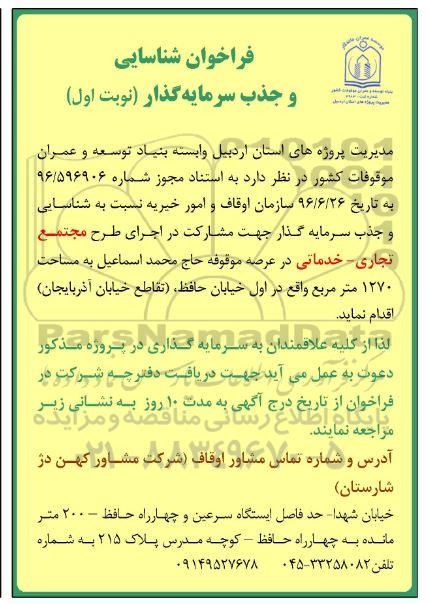 موسسه عمران ماندگار
بنیاد توسعه و عمران موقوفات کشور
مدیریت پروژه های استان اردبیل
فراخوان شناسایی
و جذب سرمایه‌گذار (نوبت اول)
مدیریت پروژه های استان اردبیل وابسته بنیاد توسعه و عمران
موقوفات کشور در نظر دارد به استناد مجوز شماره ۹۶/۵۹۶۹۰۶
به تاریخ ۹۶/۶/۲۶ سازمان اوقاف و امور خیریه نسبت به شناسایی
و جذب سرمایه گذار جهت مشارکت در اجرای طرح مجتمع
تجاری- خدماتی در عرصه موقوفه حاج محمد اسماعیل به مساحت
۱۲۷۰ متر مربع واقع در اول خیابان حافظ، (تقاطع خیابان آذربایجان)
اقدام نماید.
لذا از کلیه علاقمندان به سرمایه گذاری در پروژه مذکور
دعوت به عمل می آید جهت دریافت دفترچه شرکت در
فراخوان از تاریخ درج آگهی به مدت ۱۰ روز به نشانی زیر
مراجعه نمایند.
آدرس و شماره تماس مشاور اوقاف (شرکت مشاور کهن دژ
شارستان)
خیابان شهدا- حد فاصل ایستگاه سرعین و چهارراه حافظ – ۲۰۰ متر
مانده به چهارراه حافظ – کوچه مدرس پلاک ۲۱۵ به شماره
تلفن ۳۳۲۵۸۰۸۲-۰۴۵ ۰۹۱۴۹۵۲۷۶۷۸
ParsNamadData
پایگاه اطلاع رسانی مناقصه و مزایده
۰۲۱-۸۸۳۴۹۶۷۰-۵